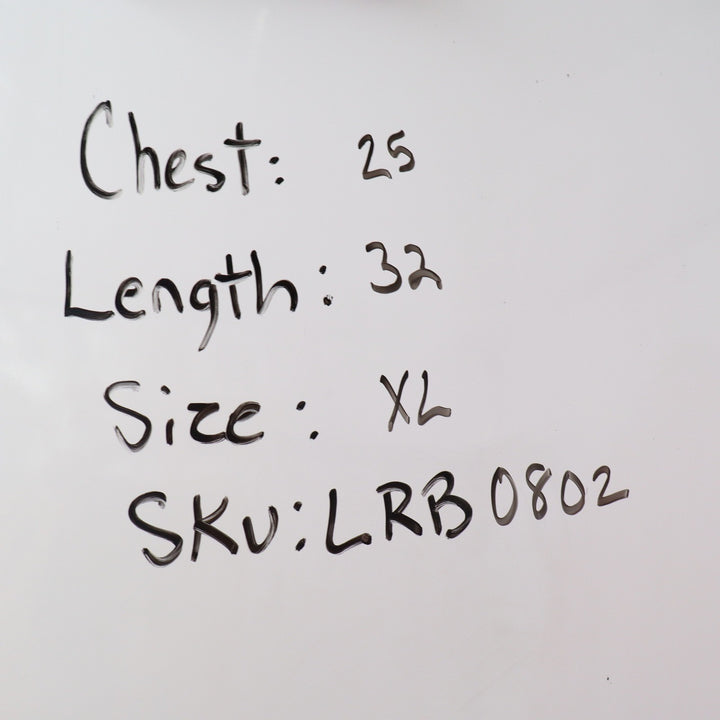 Chest: 25
Length: 32
Size: XL
SKU: LRB0802